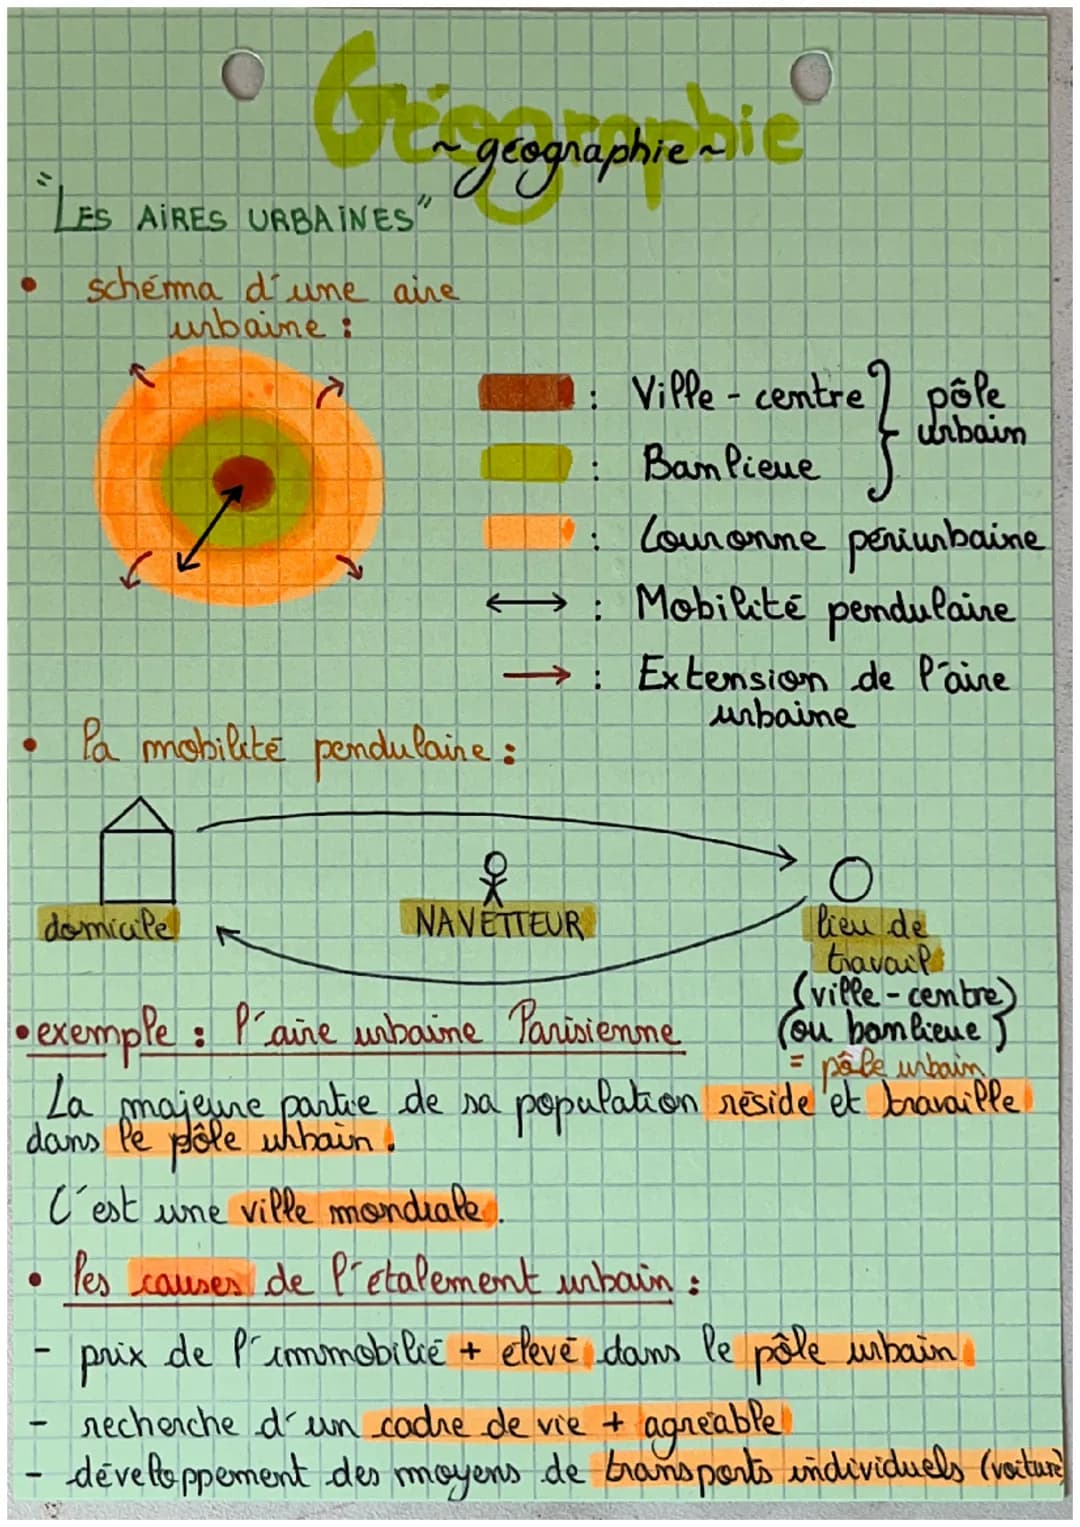 Géographie
~ géographie ~
"LES AIRES URBAINES"
• schéma d'une aire
urbaine :
: Ville-centre } pôle
urbain
: Banlieue
: Couronne périurbaine
: Mobilité pendulaire
: Extension de l'aire
urbaine
• la mobilité pendulaire :
domicile
NAVETTEUR
lieu de
travail
(ville-centre)
(ou banlieue)
= pôle urbain
• exemple : l'aire urbaine Parisienne
La majeure partie de sa population réside et travaille
dans le pôle urbain.
C'est une ville mondiale.
• les causes de l'étalement urbain :
- prix de l'immobilié + élevé dans le pôle urbain
- recherche d'un cadre de vie + agréable
- développement des moyens de transports individuels (voiture)